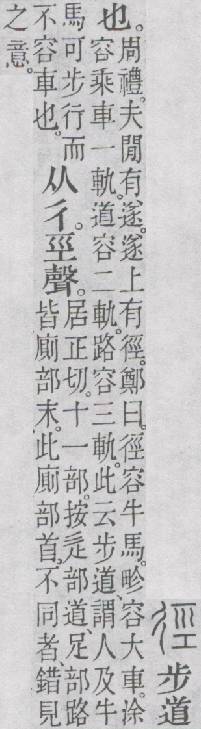 徑 步道
也。
周禮。夫閒有遂。遂上有徑。鄭曰。徑容牛馬。畛容大車。涂
容乘車一軌。道容二軌。路容三軌。此云步道、謂人及牛
馬可步行而
不容車也。
从彳。巠聲。
居正切。十一部。按辵部道、足部路
皆廁部末。此廁部首。不同者、錯見
之意。